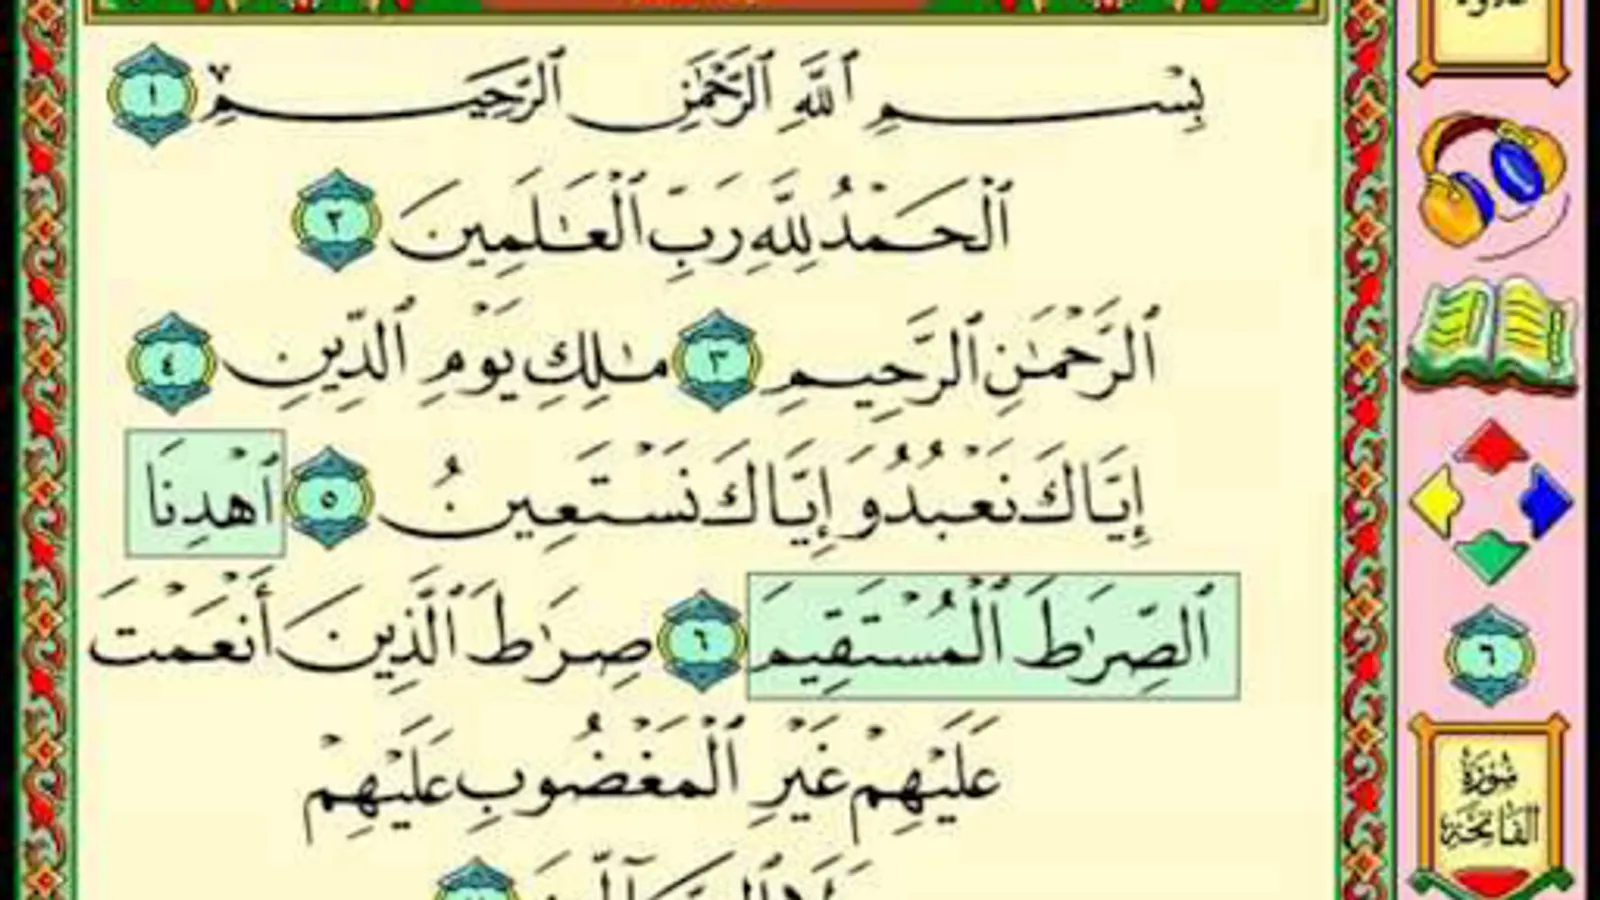 بِسْمِ ٱللَّهِ ٱلرَّحْمَٰنِ ٱلرَّحِيمِ ١
ٱلْحَمْدُ لِلَّهِ رَبِّ ٱلْعَٰلَمِينَ ٢
ٱلرَّحْمَٰنِ ٱلرَّحِيمِ ٣ مَٰلِكِ يَوْمِ ٱلدِّينِ ٤
إِيَّاكَ نَعْبُدُ وَإِيَّاكَ نَسْتَعِينُ ٥ ٱهْدِنَا
ٱلصِّرَٰطَ ٱلْمُسْتَقِيمَ ٦ صِرَٰطَ ٱلَّذِينَ أَنْعَمْتَ
عَلَيْهِمْ غَيْرِ ٱلْمَغْضُوبِ عَلَيْهِمْ
٦
سُورَةُ
الفَاتِحَة